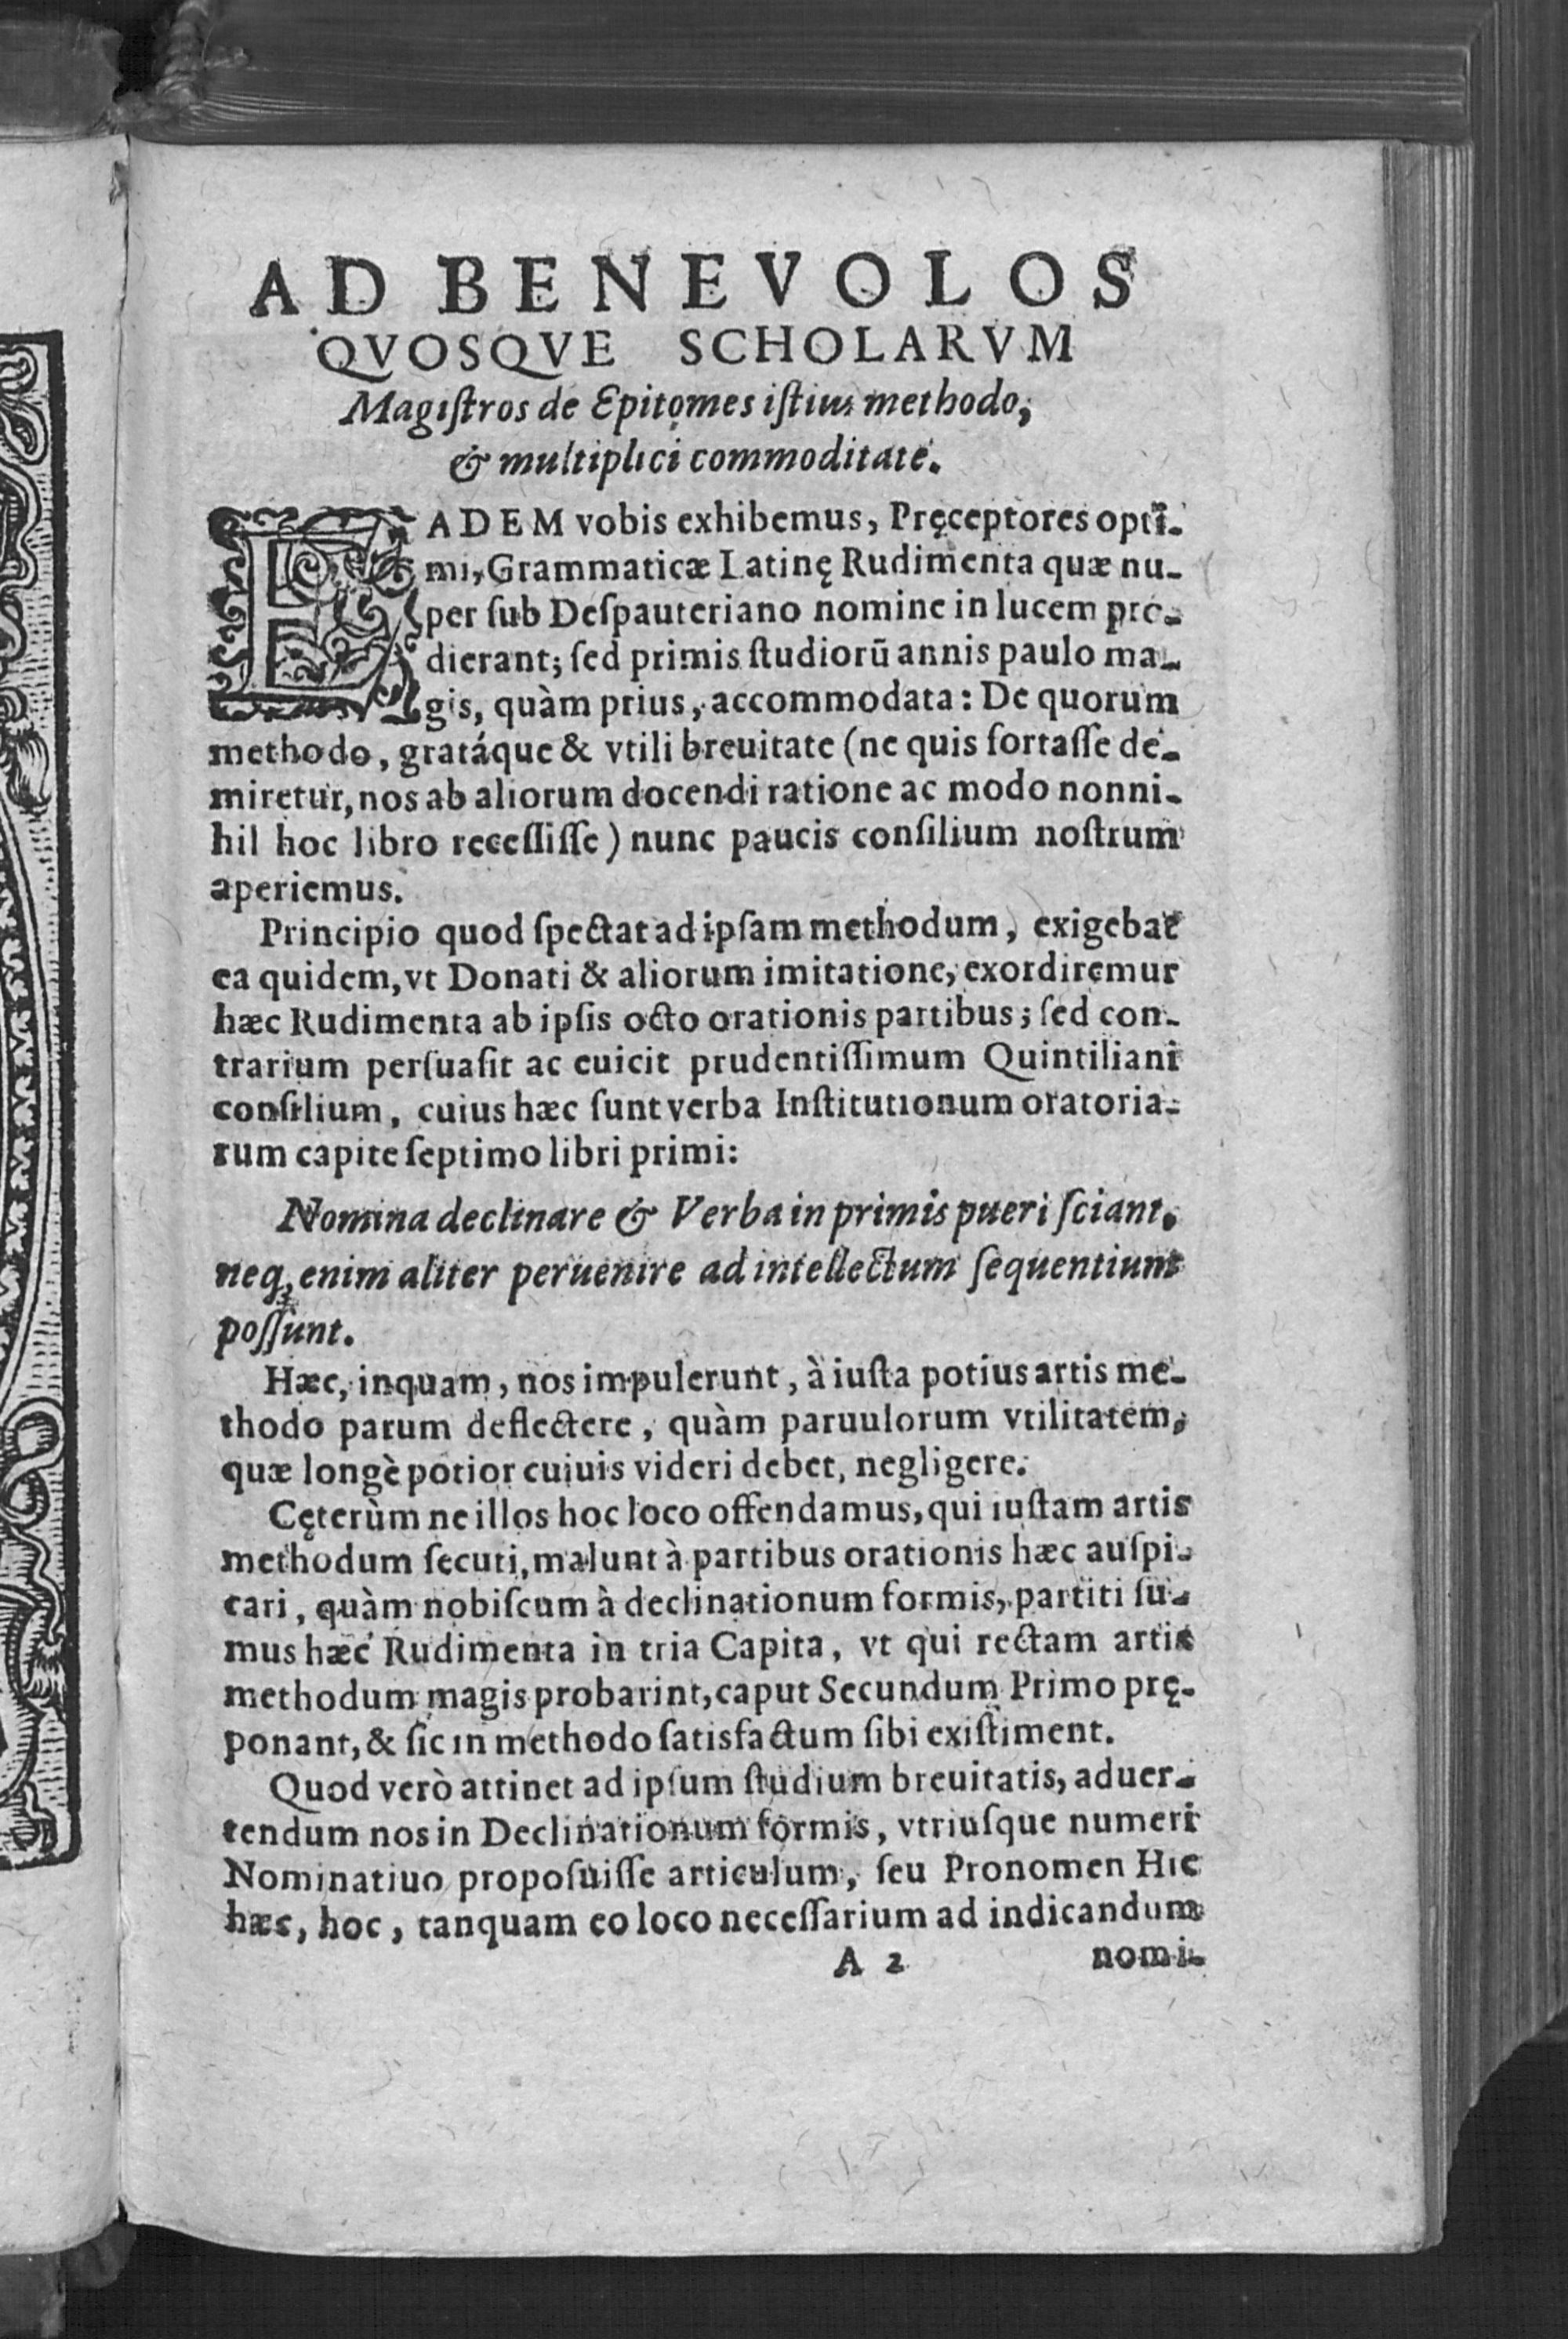 AD BENEVOLOS
QVOSQVE SCHOLARVM
Magiſtros de Epitomes iſtius methodo,
& multiplici commoditate.
EADEM vobis exhibemus, Pręceptores opti-
mi, Grammaticæ Latinę Rudimenta quæ nu-
per ſub Deſpauteriano nomine in lucem pro-
dierant; ſed primis ſtudiorũ annis paulo ma-
gis, quàm prius, accommodata: De quorum
methodo, gratáque & vtili breuitate (ne quis fortaſſe de-
miretur, nos ab aliorum docendi ratione ac modo nonni-
hil hoc libro receſſiſſe) nunc paucis conſilium noſtrum
aperiemus.
Principio quod ſpectat ad ipſam methodum, exigebat
ea quidem, vt Donati & aliorum imitatione, exordiremur
hæc Rudimenta ab ipſis octo orationis partibus; ſed con-
trarium perſuaſit ac euicit prudentiſſimum Quintiliani
conſilium, cuius hæc ſunt verba Inſtitutionum oratoria-
rum capite ſeptimo libri primi:
Nomina declinare & Verba in primis pueri ſciant.
neq; enim aliter peruenire ad intellectum ſequentium
poſſunt.
Hæc, inquam, nos impulerunt, à iuſta potius artis me-
thodo parum deflectere, quàm paruulorum vtilitatem,
quæ longè potior cuiuis videri debet, negligere.
Cęterùm ne illos hoc loco offendamus, qui iuſtam artis
methodum ſecuti, malunt à partibus orationis hæc auſpi-
cari, quàm nobiſcum à declinationum formis, partiti ſu-
mus hæc Rudimenta in tria Capita, vt qui rectam artis
methodum magis probarint, caput Secundum Primo prę-
ponant, & ſic in methodo ſatisfactum ſibi exiſtiment.
Quod verò attinet ad ipſum ſtudium breuitatis, aduer-
tendum nos in Declinationum formis, vtriuſque numeri
Nominatiuo propoſuiſſe articulum, ſeu Pronomen Hic
hæc, hoc, tanquam eo loco neceſſarium ad indicandum
A 2 nomi-